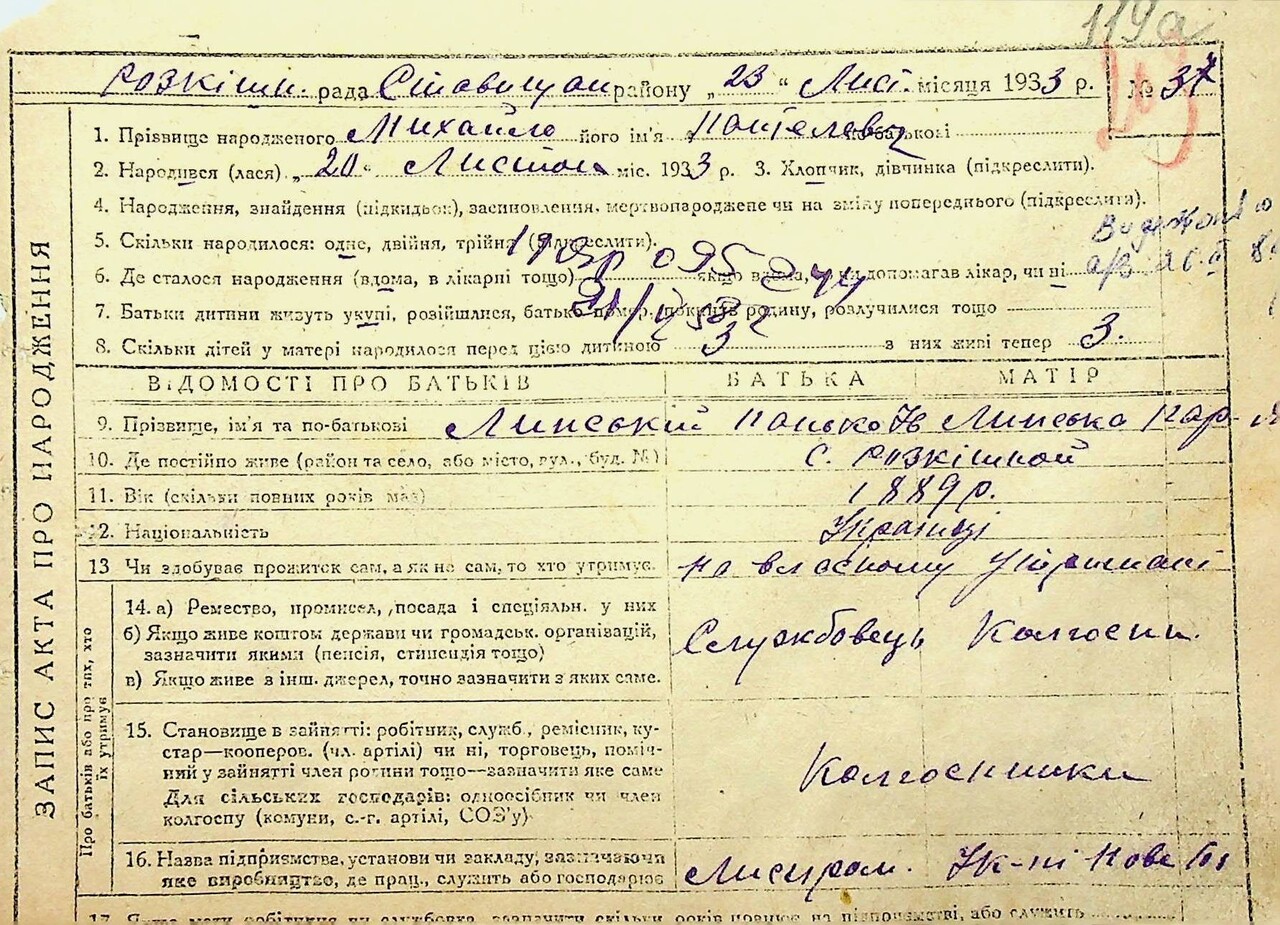 119а
Розкішн. рада Ставищан району „23“ Лист. місяця 1933 р. № 37
1. Прізвище народженого Михайло його ім'я по-батькові
2. Народився (лася) „20“ Листоп міс. 1933 р. 3. Хлопчик, дівчинка (підкреслити).
4. Народження, знайдення (підкидьок), засиновлення, мертвонароджене чи на зміну попереднього (підкреслити).
5. Скільки народилося: одне, двійня, трійня (підкреслити).
6. Де сталося народження (вдома, в лікарні тощо) якщо вдома, чи допомагав лікар, чи ні
7. Батьки дитини живуть укупі, розійшлися, батько помер, покинув родину, розлучилися тощо
8. Скільки дітей у матері народилося перед цією дитиною 3 з них живі тепер 3.
ВІДОМОСТІ ПРО БАТЬКІВ БАТЬКА МАТІР
9. Прізвище, ім'я та по-батькові Липський Панько Ів Липська Пар-
10. Де постійно живе (район та село, або місто, вул., буд. №) С. Розкішной
11. Вік (скільки повних років має) 1889 р.
12. Національність Українці
13 Чи здобуває прожиток сам, а як не сам, то хто утримує. на власному
14. а) Ремество, промисел, посада і спеціяльн. у них
б) Якщо живе коштом держави чи громадськ. організацій, Службовець Колгоспн.
зазначити якими (пенсія, стипендія тощо)
в) Якщо живе з інш. джерел, точно зазначити з яких саме.
15. Становище в зайнятті: робітник, служб., ремісник, ку-
стар—кооперов. (чл. артілі) чи ні, торговець, поміч-
ний у зайнятті член родини тощо—зазначити яке саме Колгоспники
Для сільських господарів: одноосібник чи член
колгоспу (комуни, с.-г. артілі, СОЗ'у)
16. Назва підприємства, установи чи закладу, зазначаючи
яке виробництво, де прац., служить або господарює
17. Якщо мати робітниця чи службовка, зазначити скільки років працює на підприємстві, або служить
ЗАПИС АКТА ПРО НАРОДЖЕННЯ
Про батьків або про тих, хто
їх утримує